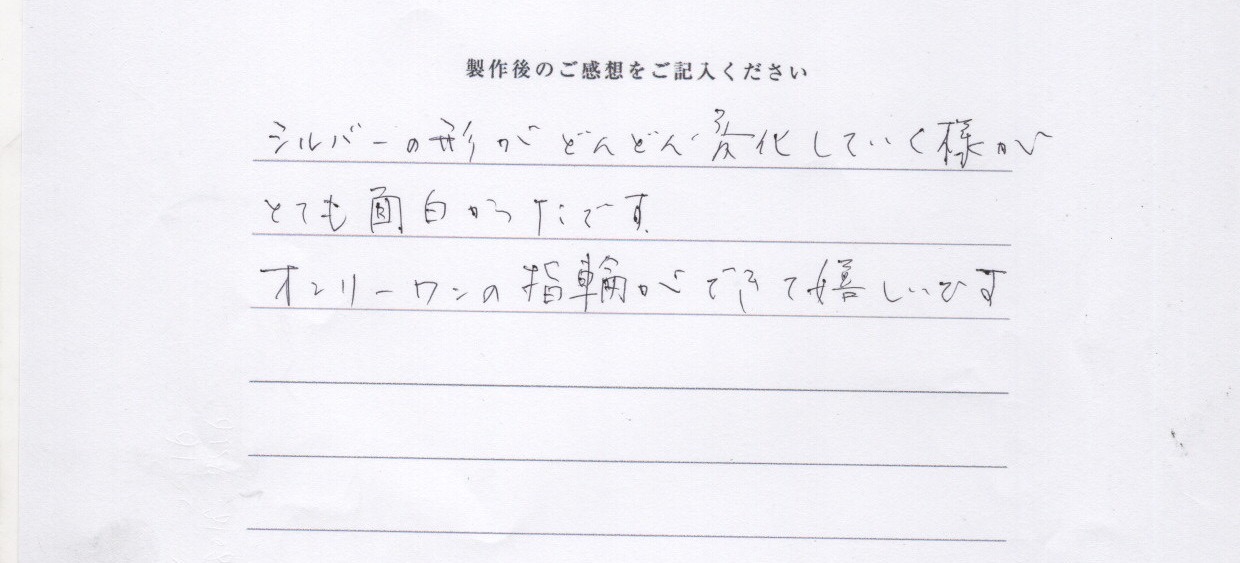 製作後のご感想をご記入ください
シルバーの形がどんどん変化していく様が
とても面白かったです
オンリーワンの指輪ができて嬉しいです